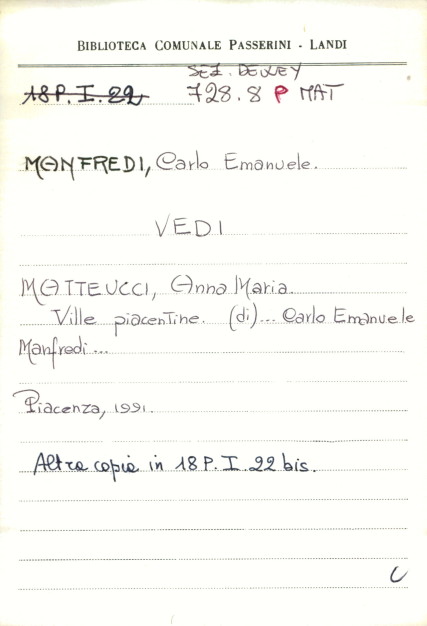 BIBLIOTECA COMUNALE PASSERINI - LANDI
SEZ. DEWEY
18P.I.22 728.8 P MAT
MANFREDI, Carlo Emanuele.
VEDI
MATTEUCCI, Anna Maria.
Ville piacentine. (di)... Carlo Emanuele
Manfredi...
Piacenza, 1991.
Altra copia in 18 P. I. 22 bis.